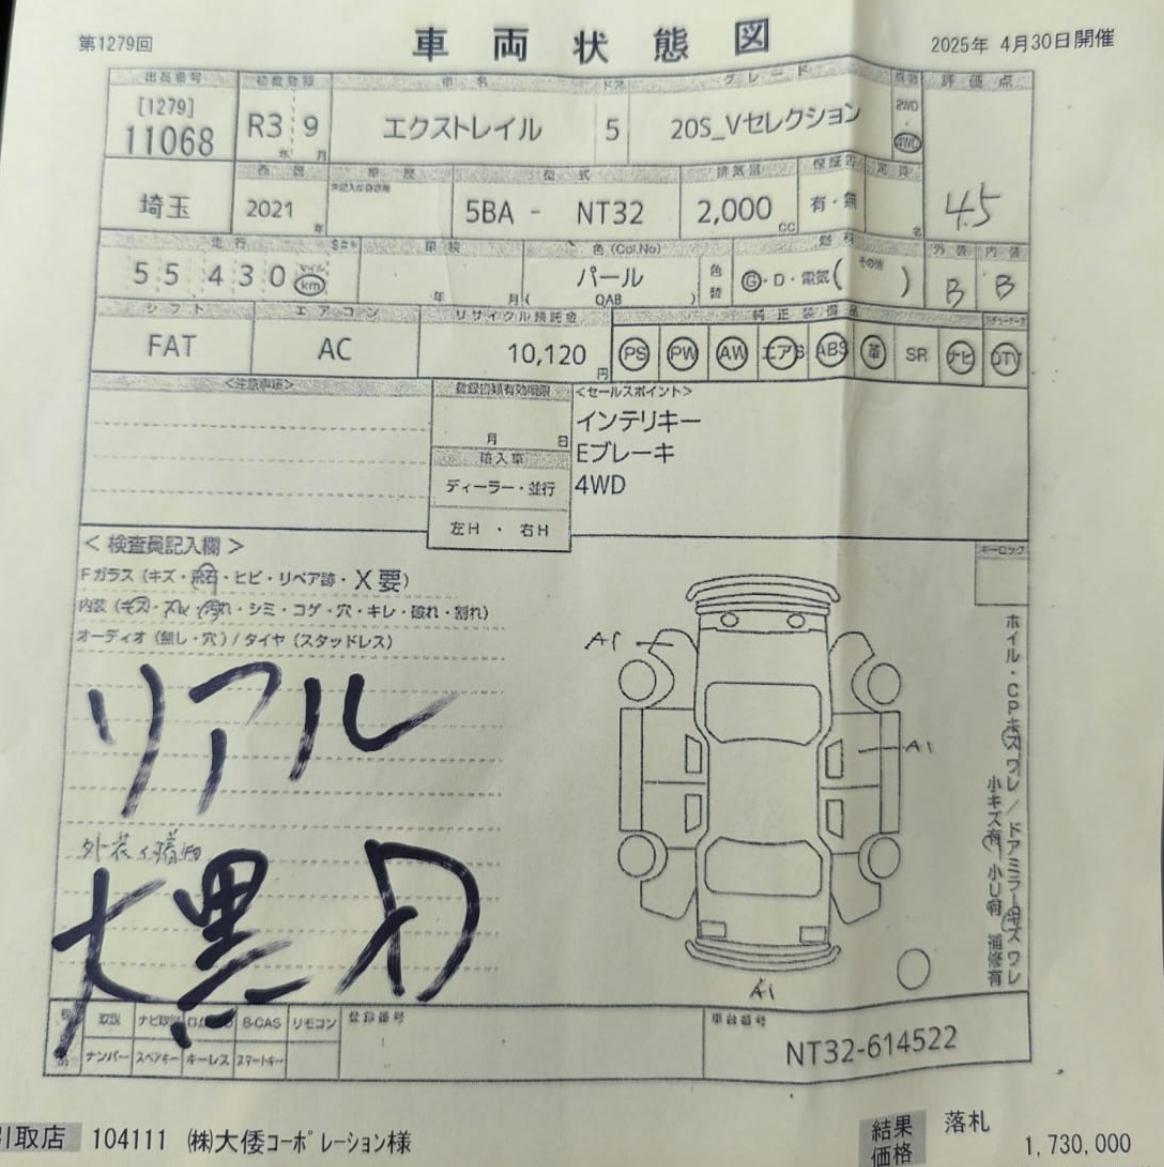 第1279回 車両状態図 2025年 4月30日開催
出品番号 初度登録 車名 ドア グレード 評価点
[1279]
11068 R3 9 エクストレイル 5 20S_Vセレクション 2WD・4WD
年 月
西暦 車歴 型式 排気量 保証書 定員
埼玉 2021 年 5BA - NT32 2,000 CC 有・無 名 4.5
走行 車検 色(Col.No) 燃料 外装 内装
55430 マイル km 年 月 パール ( QAB ) 色替 G・D・電気( その他 ) B B
シフト エアコン リサイクル預託金 純正装備品
FAT AC 10,120 円 PS PW AW エアB ABS 革 SR ナビ DTV
<注意事項> 登録書類有効期限 <セールスポイント>
月 日 インテリキー
輸入車 Eブレーキ
ディーラー・並行 4WD
左H ・ 右H
< 検査員記入欄 > キーロック
Fガラス (キズ・飛石・ヒビ・リペア跡・X要)
内装 (キズ・スレ・汚れ・シミ・コゲ・穴・キレ・破れ・割れ)
オーディオ (無し・穴) / タイヤ (スタッドレス)
リアル
A1
A1
A1
ホイル・CPキズ ワレ / ドアミラーキズ ワレ
小キズ有 小U有 補修有
大黒
取説 ナビ取説 B-CAS リモコン 登録番号 車台番号
ナンバー スペアキー キーレス スマートキー NT32-614522
引取店 104111 ㈱大倭コーポレーション様 結果 落札
価格 1,730,000